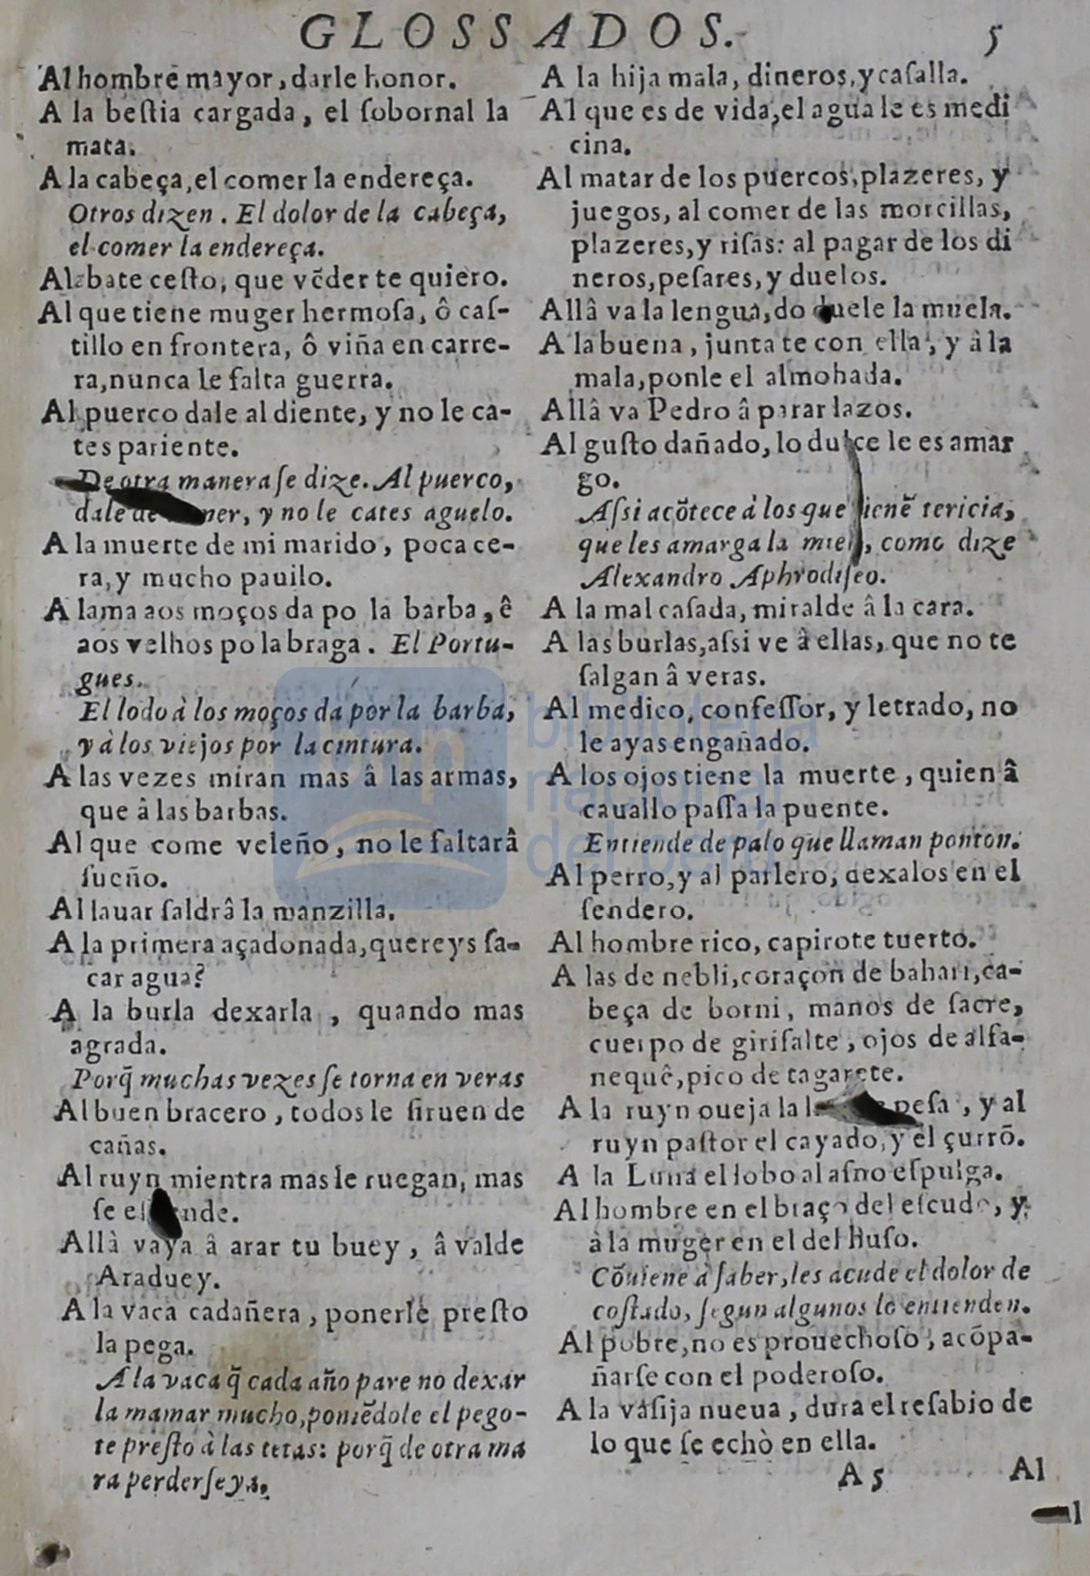 GLOSSADOS. 5
Al hombre mayor, darle honor.
A la beſtia cargada, el ſobornal la
mata.
A la cabeça, el comer la endereça.
Otros dizen. El dolor de la cabeça,
el comer la endereça.
Alabate ceſto, que vēder te quiero.
Al que tiene muger hermoſa, ô caſ-
tillo en frontera, ô viña en carre-
ra, nunca le falta guerra.
Al puerco dale al diente, y no le ca-
tes pariente.
De otra manera ſe dize. Al puerco,
dale de y no le cates aguelo.
A la muerte de mi marido, poca ce-
ra, y mucho pauilo.
A lama aos moços da po la barba, ê
aos velhos po la braga. El Portu-
gues.
El lodo à los moços da por la barba,
y à los viejos por la cintura.
A las vezes miran mas â las armas,
que â las barbas.
Al que come veleño, no le faltarâ
ſueño.
Al lauar ſaldrâ la manzilla.
A la primera açadonada, quereys ſa-
car agua?
A la burla dexarla, quando mas
agrada.
Porq̃ muchas vezes ſe torna en veras
Al buen bracero, todos le ſiruen de
cañas.
Al ruyn mientra mas le ruegan, mas
ſe
Allà vaya â arar tu buey, â valde
Araduey.
A la vaca cadañera, ponerle preſto
la pega.
A la vaca q̃ cada año pare no dexar
la mamar mucho, poniēdole el pego-
te preſto à las tetas: porq̃ de otra ma
ra perderſeya.
A la hija mala, dineros, y caſalla.
Al que es de vida, el agua le es medi
cina.
Al matar de los puercos, plazeres, y
juegos, al comer de las morcillas,
plazeres, y riſas: al pagar de los di
neros, peſares, y duelos.
Allâ va la lengua, do duele la muela.
A la buena, junta te con ella, y à la
mala, ponle el almohada.
Allâ va Pedro â parar lazos.
Al guſto dañado, lo dulce le es amar
go.
Aſsi acōtece à los que tienē tericia,
que les amarga la miel, como dize
Alexandro Aphrodiſeo.
A la mal caſada, miralde â la cara.
A las burlas, aſsi ve â ellas, que no te
ſalgan â veras.
Al medico, confeſſor, y letrado, no
le ayas engañado.
A los ojos tiene la muerte, quien â
cauallo paſſa la puente.
Entiende de palo que llaman ponton.
Al perro, y al parlero, dexalos en el
ſendero.
Al hombre rico, capirote tuerto.
A las de nebli, coraçon de bahari, ca-
beça de borni, manos de ſacre,
cuerpo de girifalte, ojos de alfa-
nequê, pico de tagarete.
A la ruyn oueja la peſa, y al
ruyn paſtor el cayado, y el çurrō.
A la Luna el lobo al aſno eſpulga.
Al hombre en el braço del eſcudo, y
à la muger en el del huſo.
Cōuiene à ſaber, les acude el dolor de
coſtado, ſegun algunos lo entienden.
Al pobre, no es prouechoſo, acōpa-
ñarſe con el poderoſo.
A la vaſija nueua, dura el reſabio de
lo que ſe echò en ella.
A 5 Al
biblioteca
nacional
del perú